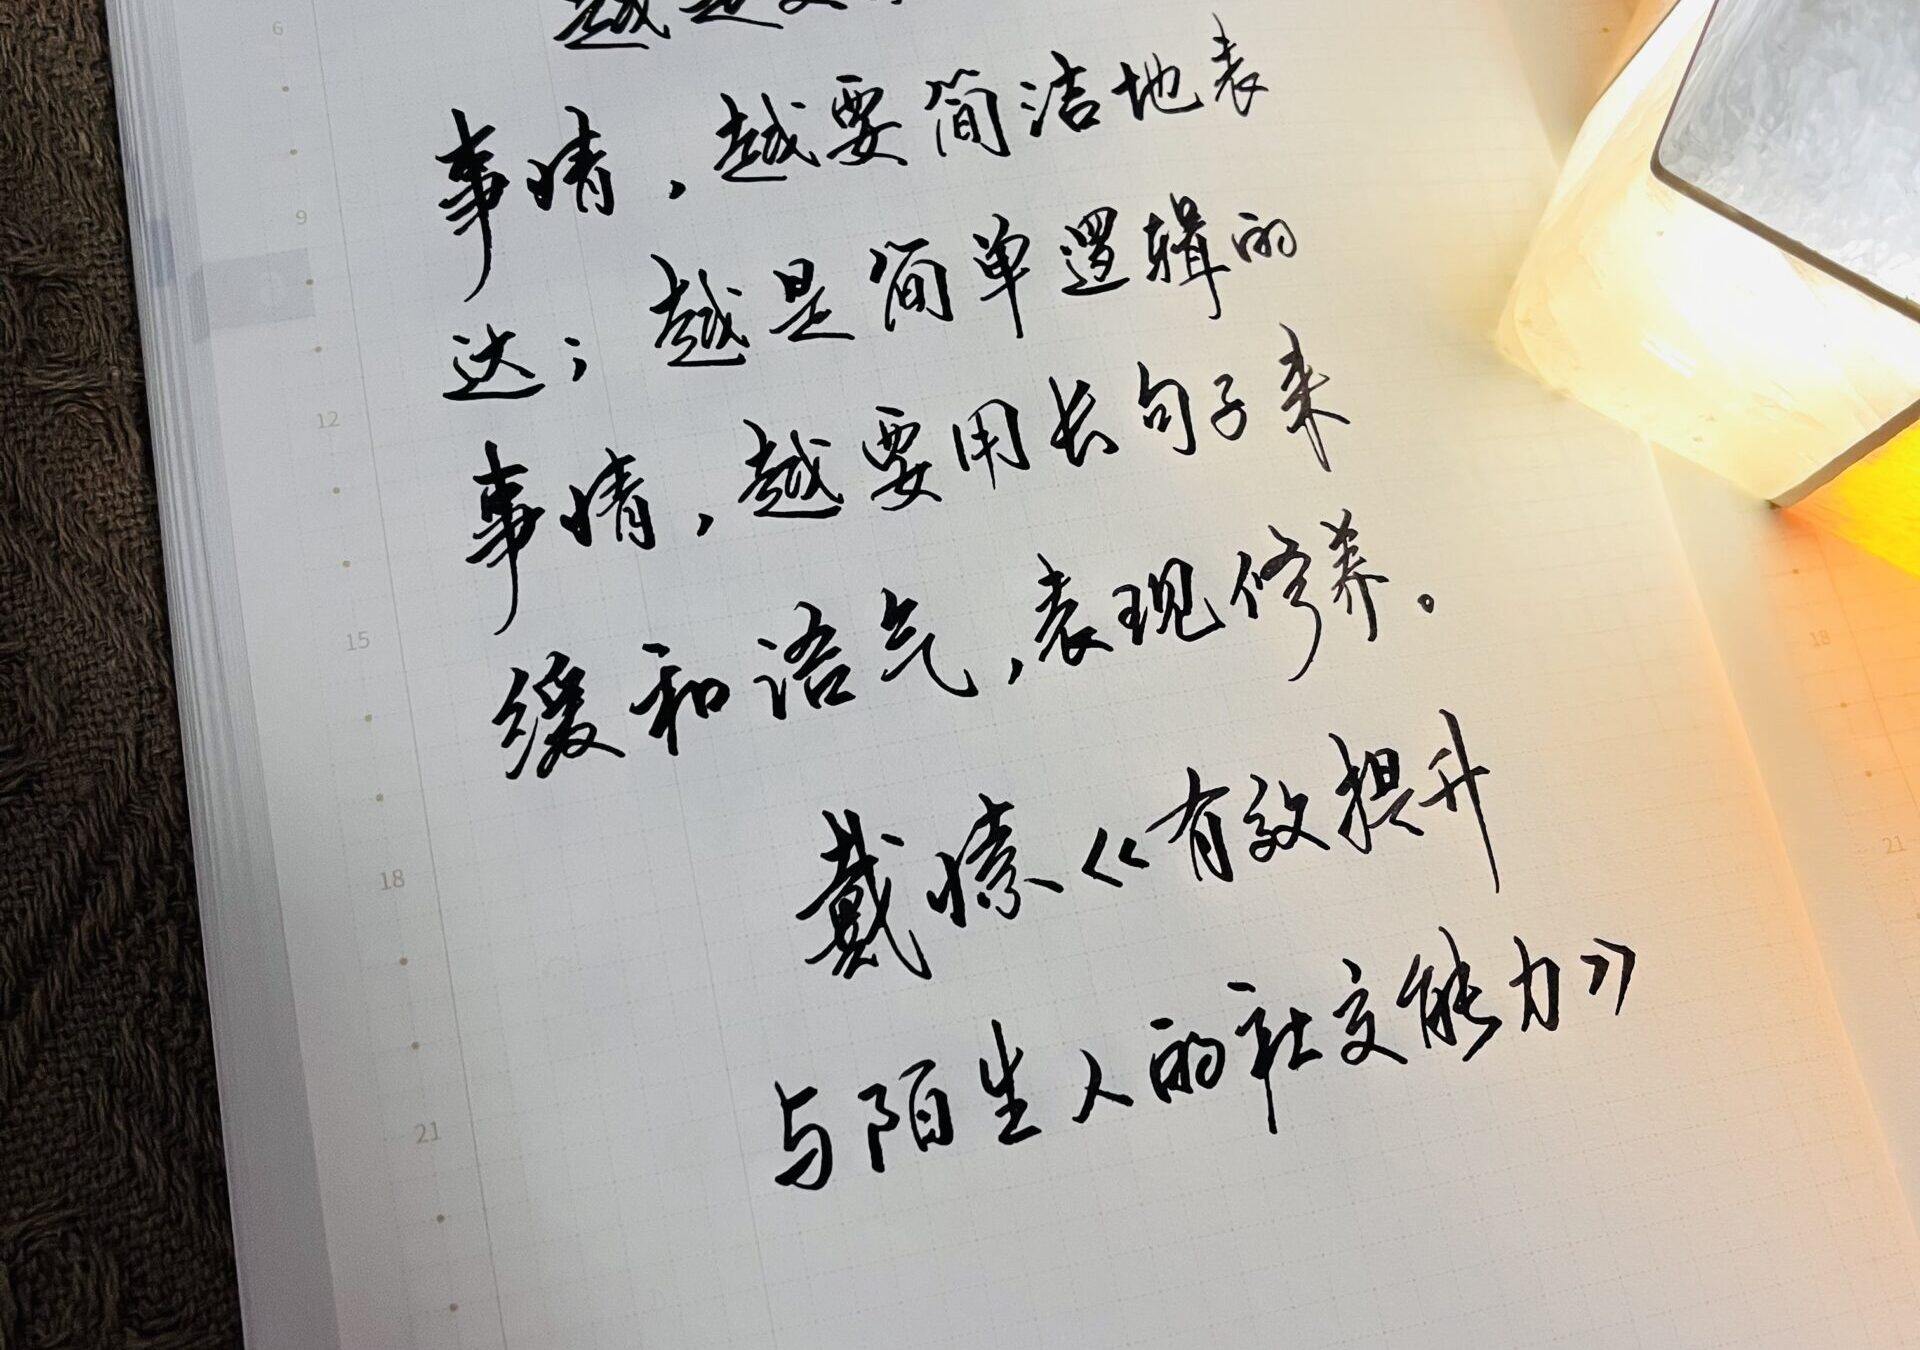 越是复
6
事情，越要简洁地表
9
达；越是简单逻辑的
12
事情，越要用长句子来
15
缓和语气，表现修养。
18
戴愫《有效提升
18
与陌生人的社交能力》
21
21